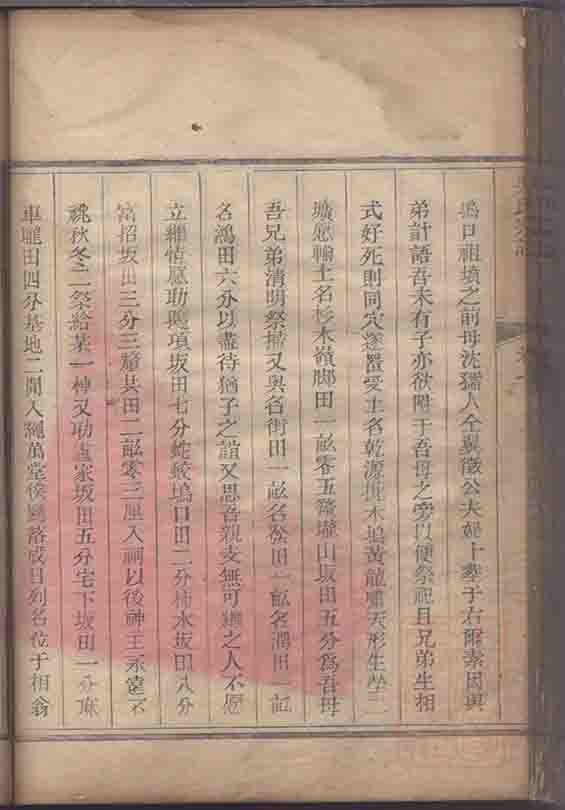 塢口祖墳之前母沈孺人仝翼徵公夫婦卜塟于右爾素因與
弟計語吾未有子亦欲附于吾母之旁以便祭祀且兄弟生相
式好死則同穴遂置受土名乾源塢木塢黃龍嘯天形生塋二
壙愿輸土名杉木嶺脚田一畝零五釐壠山坂田五分爲吾母
吾兄弟清明祭掃又與各街田一畝名登田一畝名潤田一畝
名鴻田六分以盡待猶子之誼又思吾親支無可繼之人不愿
立繼情愿助隱項坂田七分蛇蛟塢口田二分柿木坂田八分
富招坂田三分三釐共田二畝零三厘入祠以後神主永遠不
祧秋冬二祭給某一棹又助盧家坂田五分宅下坂田一分麻
車壠田四分基地二間入繩萬堂俟廳落成日列名位于相翁